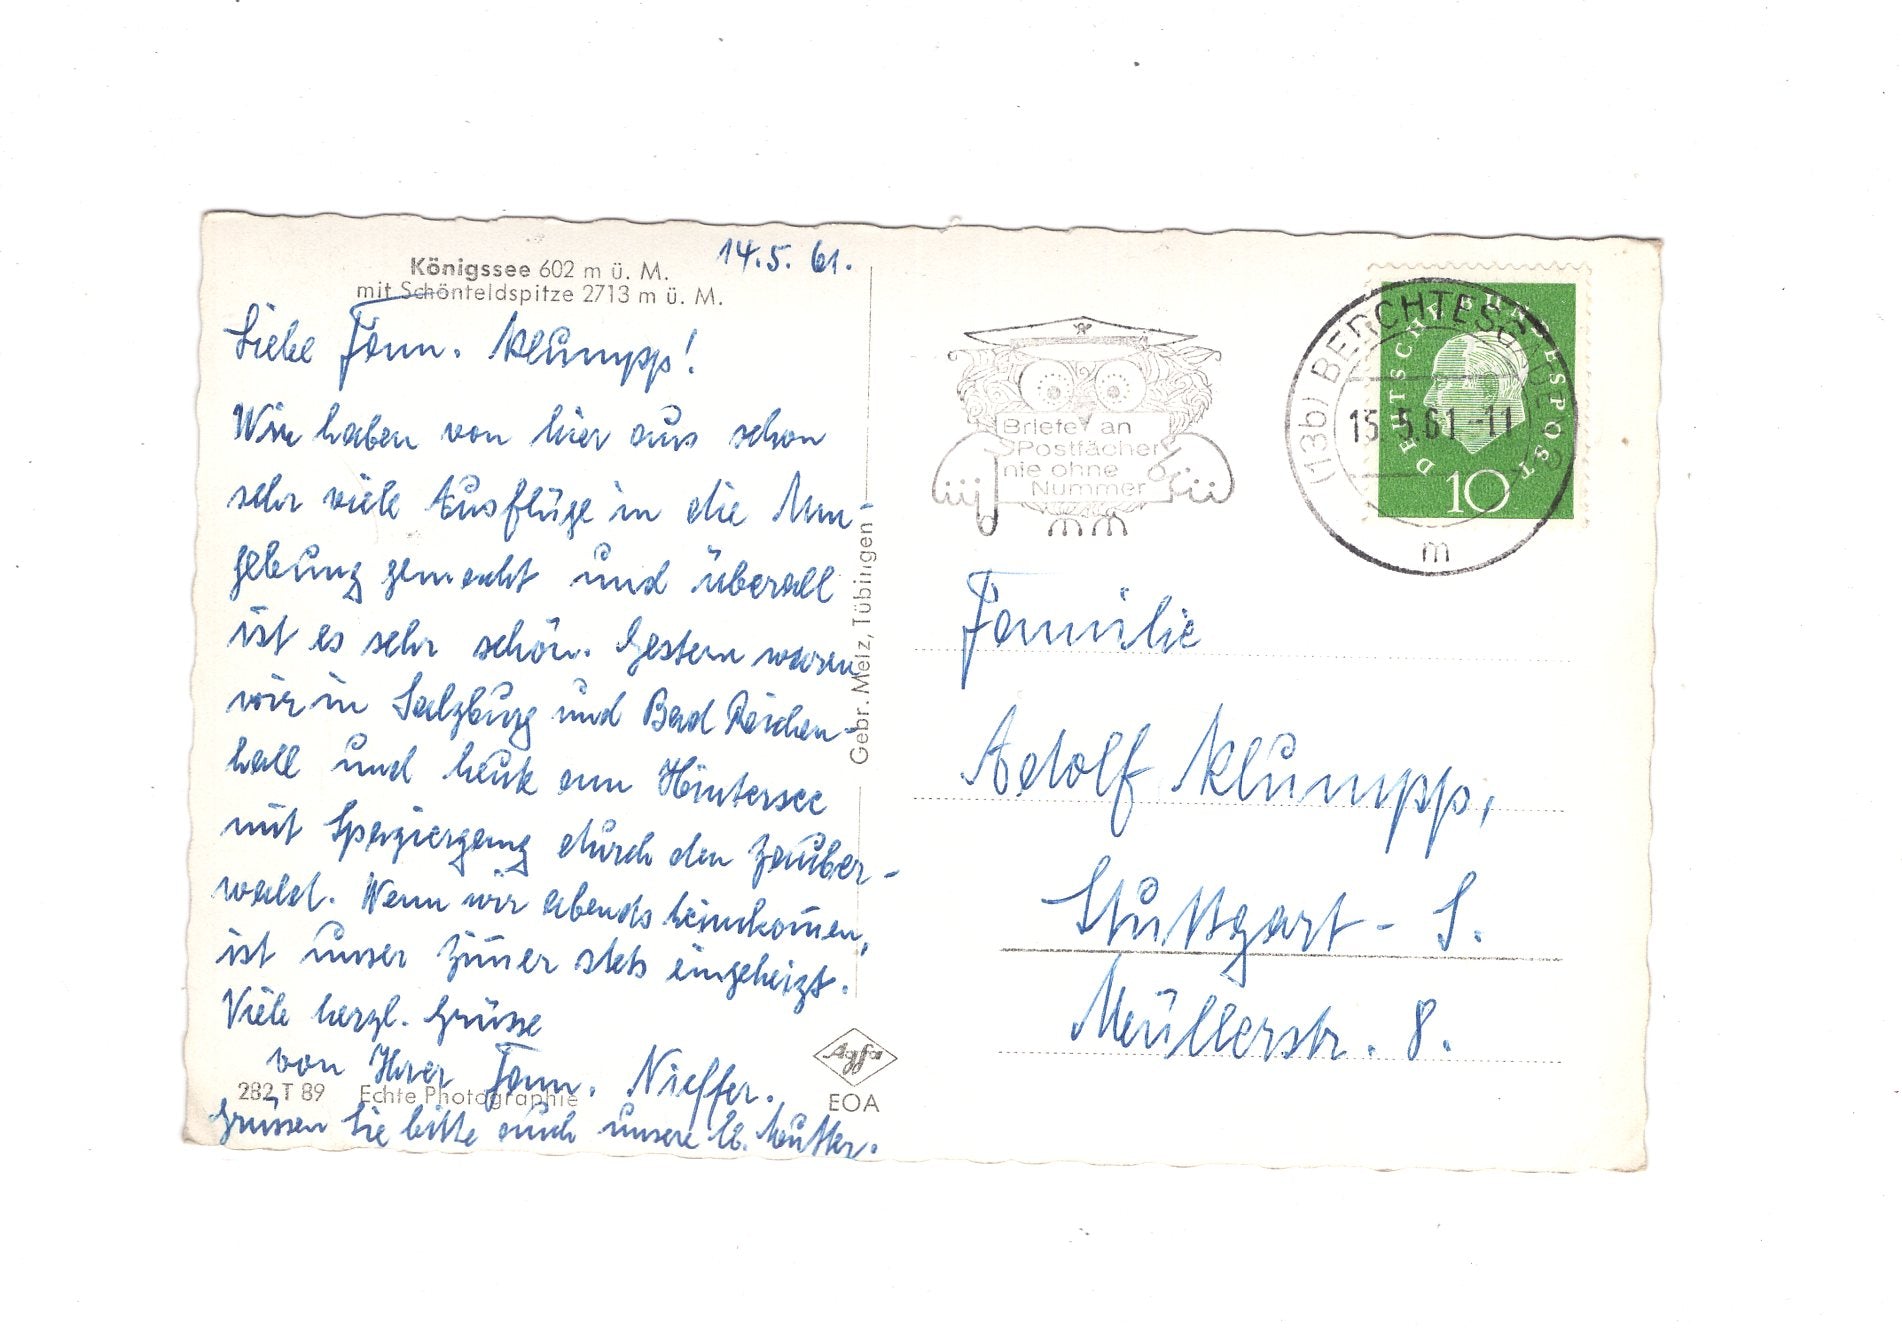 Königssee 602 m ü. M.
mit Schönfeldspitze 2713 m ü. M.
14.5.61.
Liebe Fam. Klumpp!
Wir haben von hier aus schon
sehr viele Ausflüge in die Um-
gebung gemacht und überall
ist es sehr schön. Gestern waren
wir in Salzburg und Bad Reichen-
hall und heute am Hintersee
mit Spaziergang durch den Zauber-
wald. Wenn wir abends heimkom̄en,
ist unser Zim̄er stets eingeheizt.
Viele herzl. Grüsse
von Ihrer Fam. Nieffer.
Grüssen Sie bitte auch unsere lb. Mutter.
282 T 89 Echte Photographie
Agfa
EOA
Gebr. Metz, Tübingen
Briefe an
Postfächer
nie ohne
Nummer
(13b) BERCHTESGADEN 2
15.5.61-11
m
DEUTSCHE BUNDESPOST
10
Familie
Adolf Klumpp,
Stuttgart - S.
Müllerstr. 8.